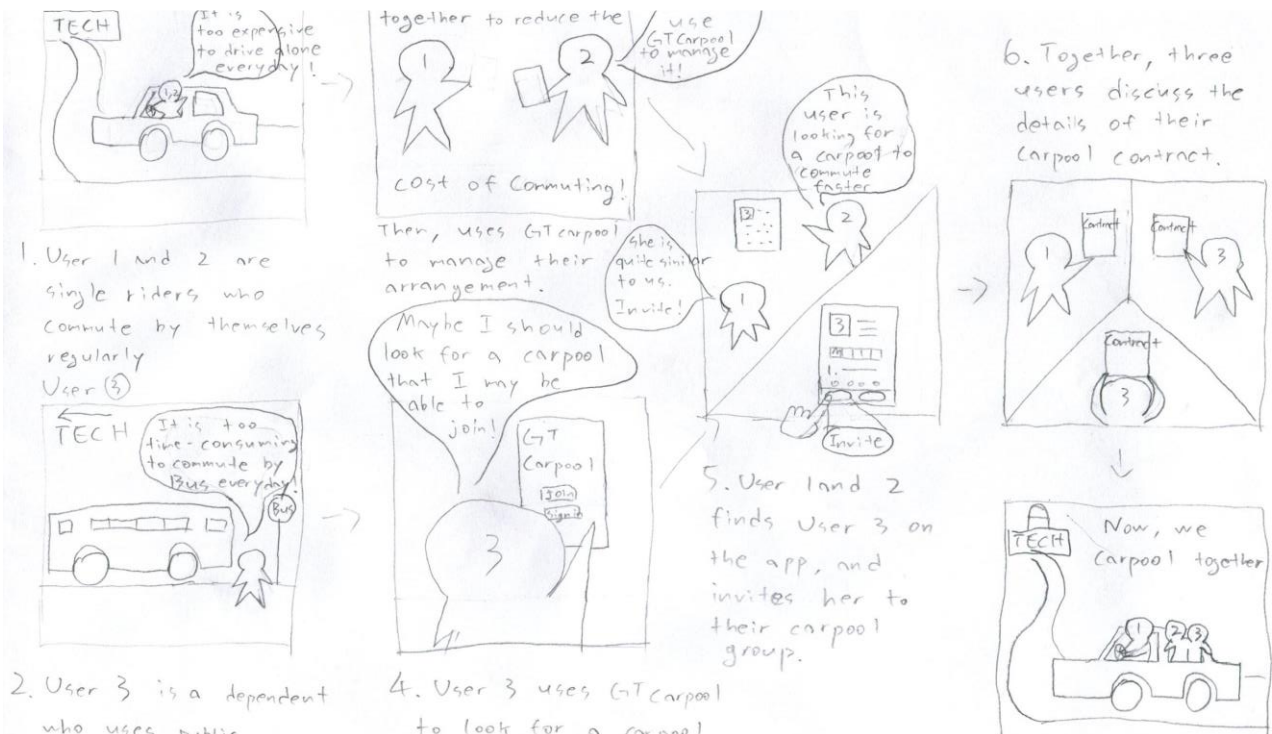 TECH
It is
too expensive
to drive alone
everyday!
1,2
1. User 1 and 2 are
single riders who
commute by themselves
regularly
User 3
TECH
It is too
time-consuming
to commute by
Bus everyday!
Bus
2. User 3 is a dependent
who uses public
together to reduce the
1
2
use
GT Carpool
to manage
it!
cost of Commuting!
Then, uses GT carpool
to manage their
arrangement.
Maybe I should
look for a carpool
that I may be
able to
join!
GT
Carpool
join
sign in
3
4. User 3 uses GT carpool
to look for a carpool
This
user is
looking for
a carpool to
commute
faster
3
2
She is
quite similar
to us.
Invite!
1
3
1.
Invite
5. User 1 and 2
finds User 3 on
the app, and
invites her to
their carpool
group.
6. Together, three
users discuss the
details of their
Carpool contract.
1
Contract
Contract
3
Contract
3
TECH
Now, we
Carpool together
1
2
3